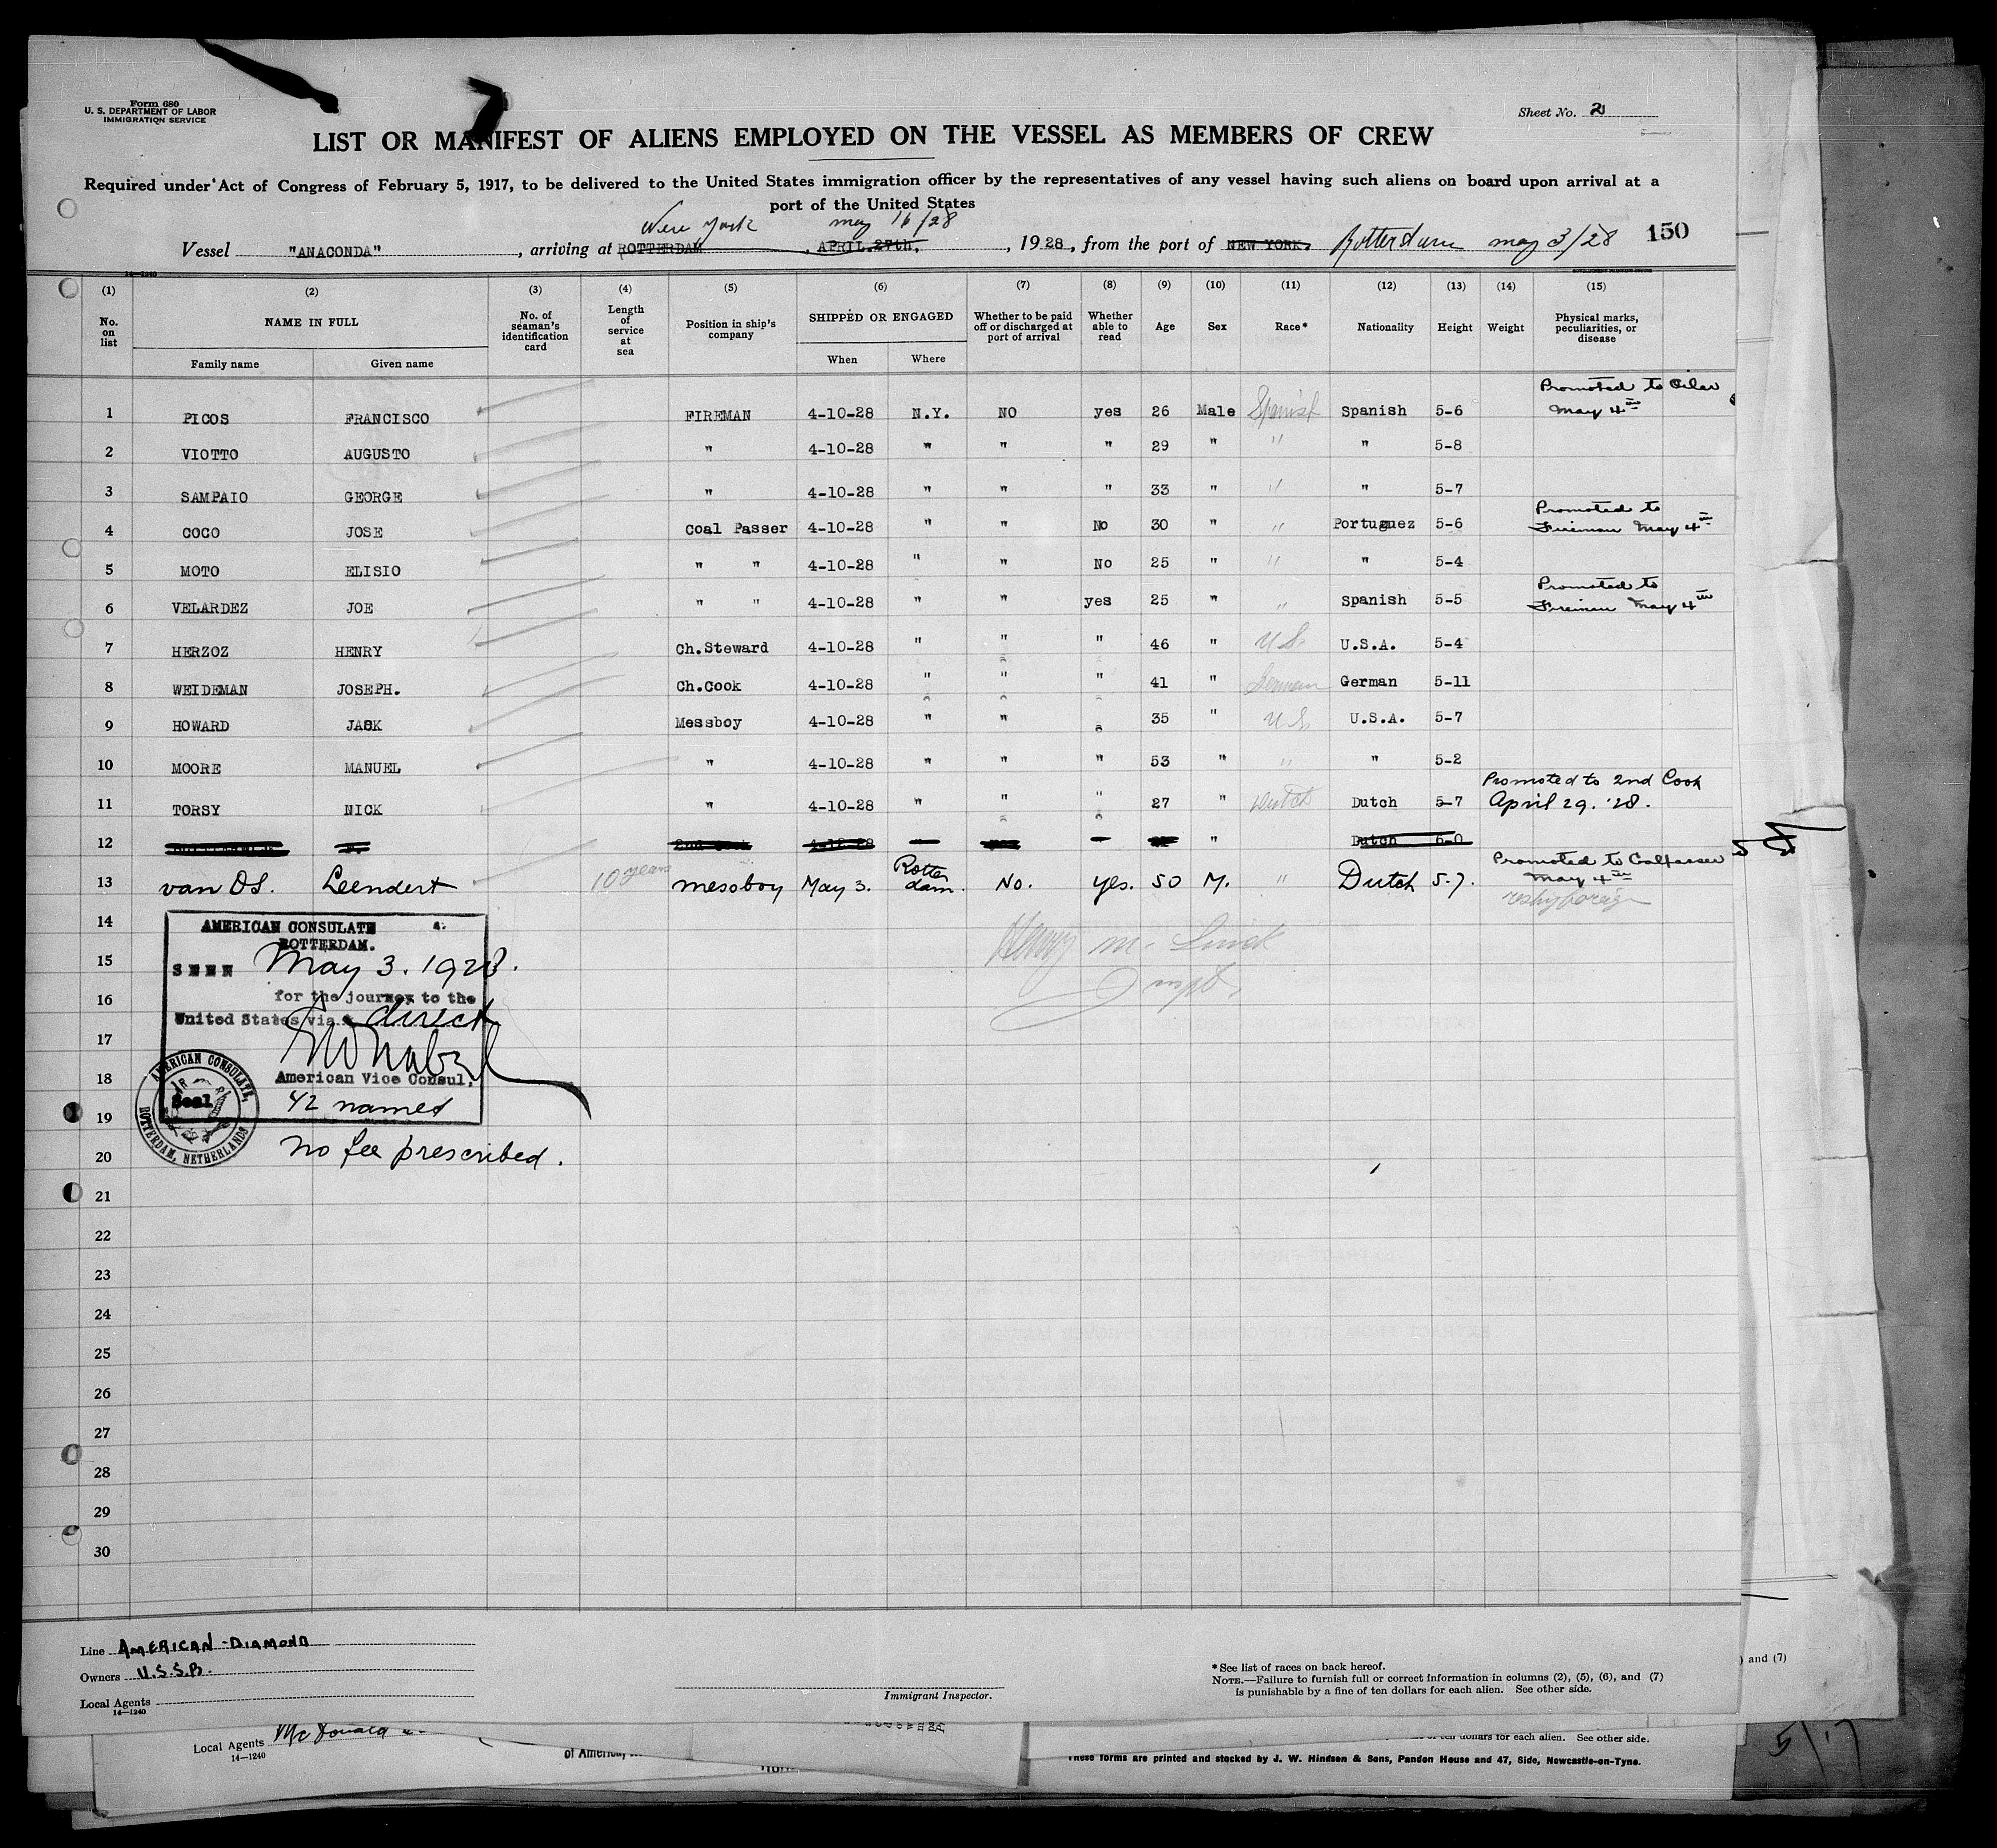 Form 680
U. S. DEPARTMENT OF LABOR
IMMIGRATION SERVICE
Sheet No. 2
LIST OR MANIFEST OF ALIENS EMPLOYED ON THE VESSEL AS MEMBERS OF CREW
Required under Act of Congress of February 5, 1917, to be delivered to the United States immigration officer by the representatives of any vessel having such aliens on board upon arrival at a
port of the United States
New York may 16/28
Vessel "ANACONDA", arriving at ROTTERDAM, APRIL 27th, 1928, from the port of NEW YORK. Rotterdam may 3/28 150
14—1240
(1) (2) (3) (4) (5) (6) (7) (8) (9) (10) (11) (12) (13) (14) (15)
No. on list NAME IN FULL No. of seaman's identification card Length of service at sea Position in ship's company SHIPPED OR ENGAGED Whether to be paid off or discharged at port of arrival Whether able to read Age Sex Race* Nationality Height Weight Physical marks, peculiarities, or disease
Family name Given name When Where
1 PICOS FRANCISCO FIREMAN 4-10-28 N.Y. NO yes 26 Male Spanish Spanish 5-6 Promoted to Oiler May 4th
2 VIOTTO AUGUSTO " 4-10-28 " " " 29 " " " 5-8
3 SAMPAIO GEORGE " 4-10-28 " " " 33 " " " 5-7
4 COCO JOSE Coal Passer 4-10-28 " " No 30 " " Portuguez 5-6 Promoted to Fireman May 4th
5 MOTO ELISIO " " 4-10-28 " " No 25 " " " 5-4
6 VELARDEZ JOE " " 4-10-28 " " yes 25 " " Spanish 5-5 Promoted to Fireman May 4th
7 HERZOZ HENRY Ch.Steward 4-10-28 " " " 46 " U.S. U.S.A. 5-4
8 WEIDEMAN JOSEPH. Ch.Cook 4-10-28 " " " 41 " German German 5-11
9 HOWARD JACK Messboy 4-10-28 " " " 35 " U.S. U.S.A. 5-7
10 MOORE MANUEL " 4-10-28 " " " 53 " " " 5-2
11 TORSY NICK " 4-10-28 " " " 27 " Dutch Dutch 5-7 Promoted to 2nd Cook April 29. '28.
12 2nd cook " Dutch 6-0
13 van OS. Leendert 10 years messboy May 3. Rotterdam. No. yes. 50 M. " Dutch 5.7. Promoted to Calpasser May 4th
14
AMERICAN CONSULATE
ROTTERDAM.
15 SEEN May 3. 1928.
16 for the journey to the
United States via direct
17
18 American Vice Consul,
Seal
AMERICAN CONSULATE, ROTTERDAM, NETHERLANDS
19 42 named
20 No fee prescribed.
21
22
23
24
25
26
27
28
29
30
Line AMERICAN-DIAMOND
Owners U.S.S.B.
Local Agents
14—1240
Immigrant Inspector.
*See list of races on back hereof.
NOTE.—Failure to furnish full or correct information in columns (2), (5), (6), and (7)
is punishable by a fine of ten dollars for each alien. See other side.
) and (7)
Local Agents McDonald
14—1240
of America,
dollars for each alien. See other side.
These forms are printed and stocked by J. W. Hindson & Sons, Pandon House and 47, Side, Newcastle-on-Tyne.
5/17